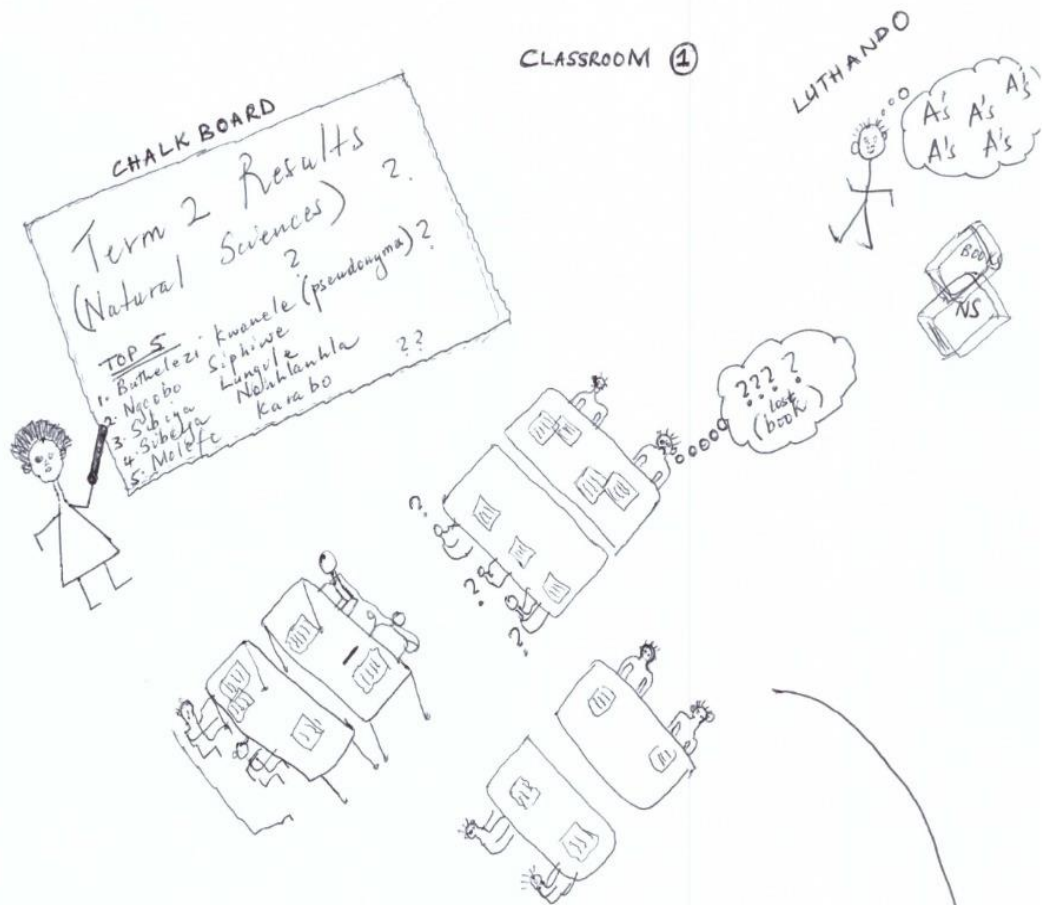 CLASSROOM 1
LUTHANDO
A's A's A's
A's A's
BOOK
NS
CHALK BOARD
Term 2 Results ?
(Natural Sciences)
? (pseudonyms) ?
TOP 5
1. Buthelezi Kwanele
2. Ngcobo Siphiwe
3. Sibiya Lungile
4. Sibiya Nonhlanhla ??
5. Molefe Karabo
? ? ? ?
lost
(book)
?
?
?
?